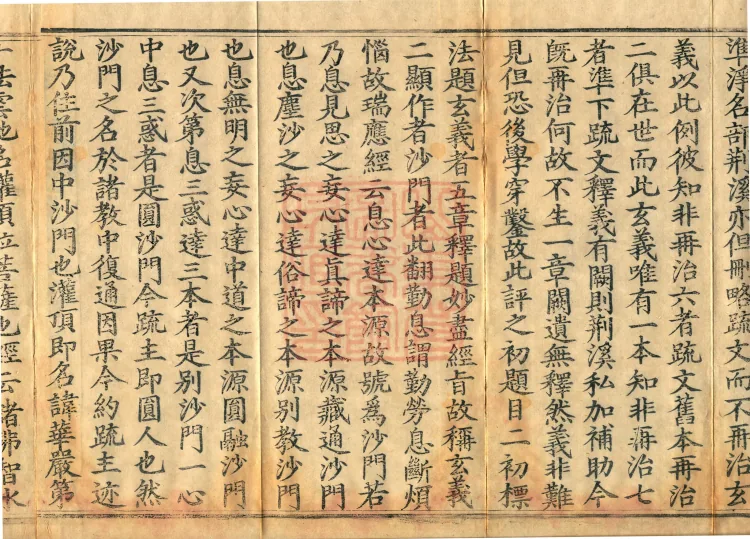 準淨名部荆溪亦但刪略疏文而不再治玄
義以此例彼知非再治六者疏文舊本再治
二俱在世而此玄義唯有一本知非再治七
者準下疏文釋義有闕則荆溪私加補助今
旣再治何故不生一章闕遺無釋然義非難
見但恐後學穿鑿故此評之初題目二初標
法題玄義者五章釋題妙盡經旨故稱玄義
二顯作者沙門者此翻勤息謂勤勞息斷煩
惱故瑞應經云息心達本源故號爲沙門若
乃息見思之妄心達眞諦之本源藏通沙門
也息塵沙之妄心達俗諦之本源別教沙門
也息無明之妄心達中道之本源圓融沙門
也又次第息三惑達三本者是別沙門一心
中息三惑者是圓沙門今疏主即圓人也然
沙門之名於諸教中復通因果今約疏主迹
說乃住前因中沙門也灌頂即名諱華嚴第
十法雲地名灌頂位菩薩也經云諸佛智水